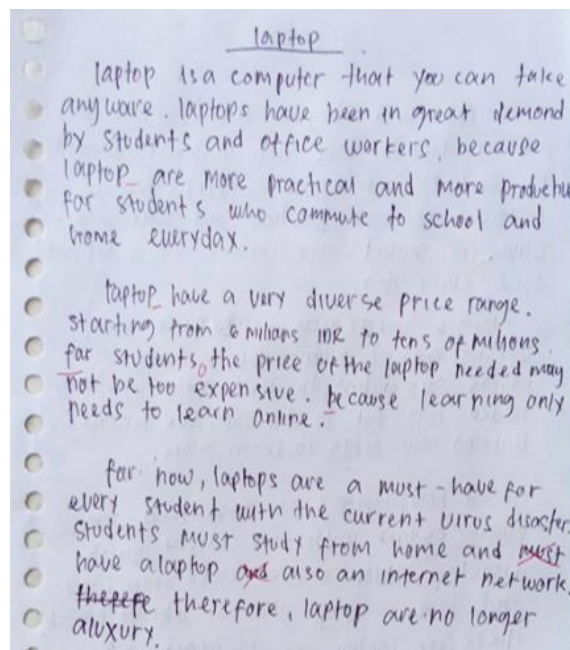 laptop
laptop is a computer that you can take
anyware. laptops have been in great demond
by students and office workers. because
laptop are more practical and more productiv
for students who commute to school and
home everyday.
laptop have a very diverse price range.
starting from 6 milians IDR to tens of milions.
far students, the price of the laptop needed may
not be too expensive. because learning only
needs to learn online.
far now, laptops are a must-have for
every student with the current virus disaster.
students must study from home and must
have alaptop and also an internet network.
therefore, laptop are no longer
aluxury.